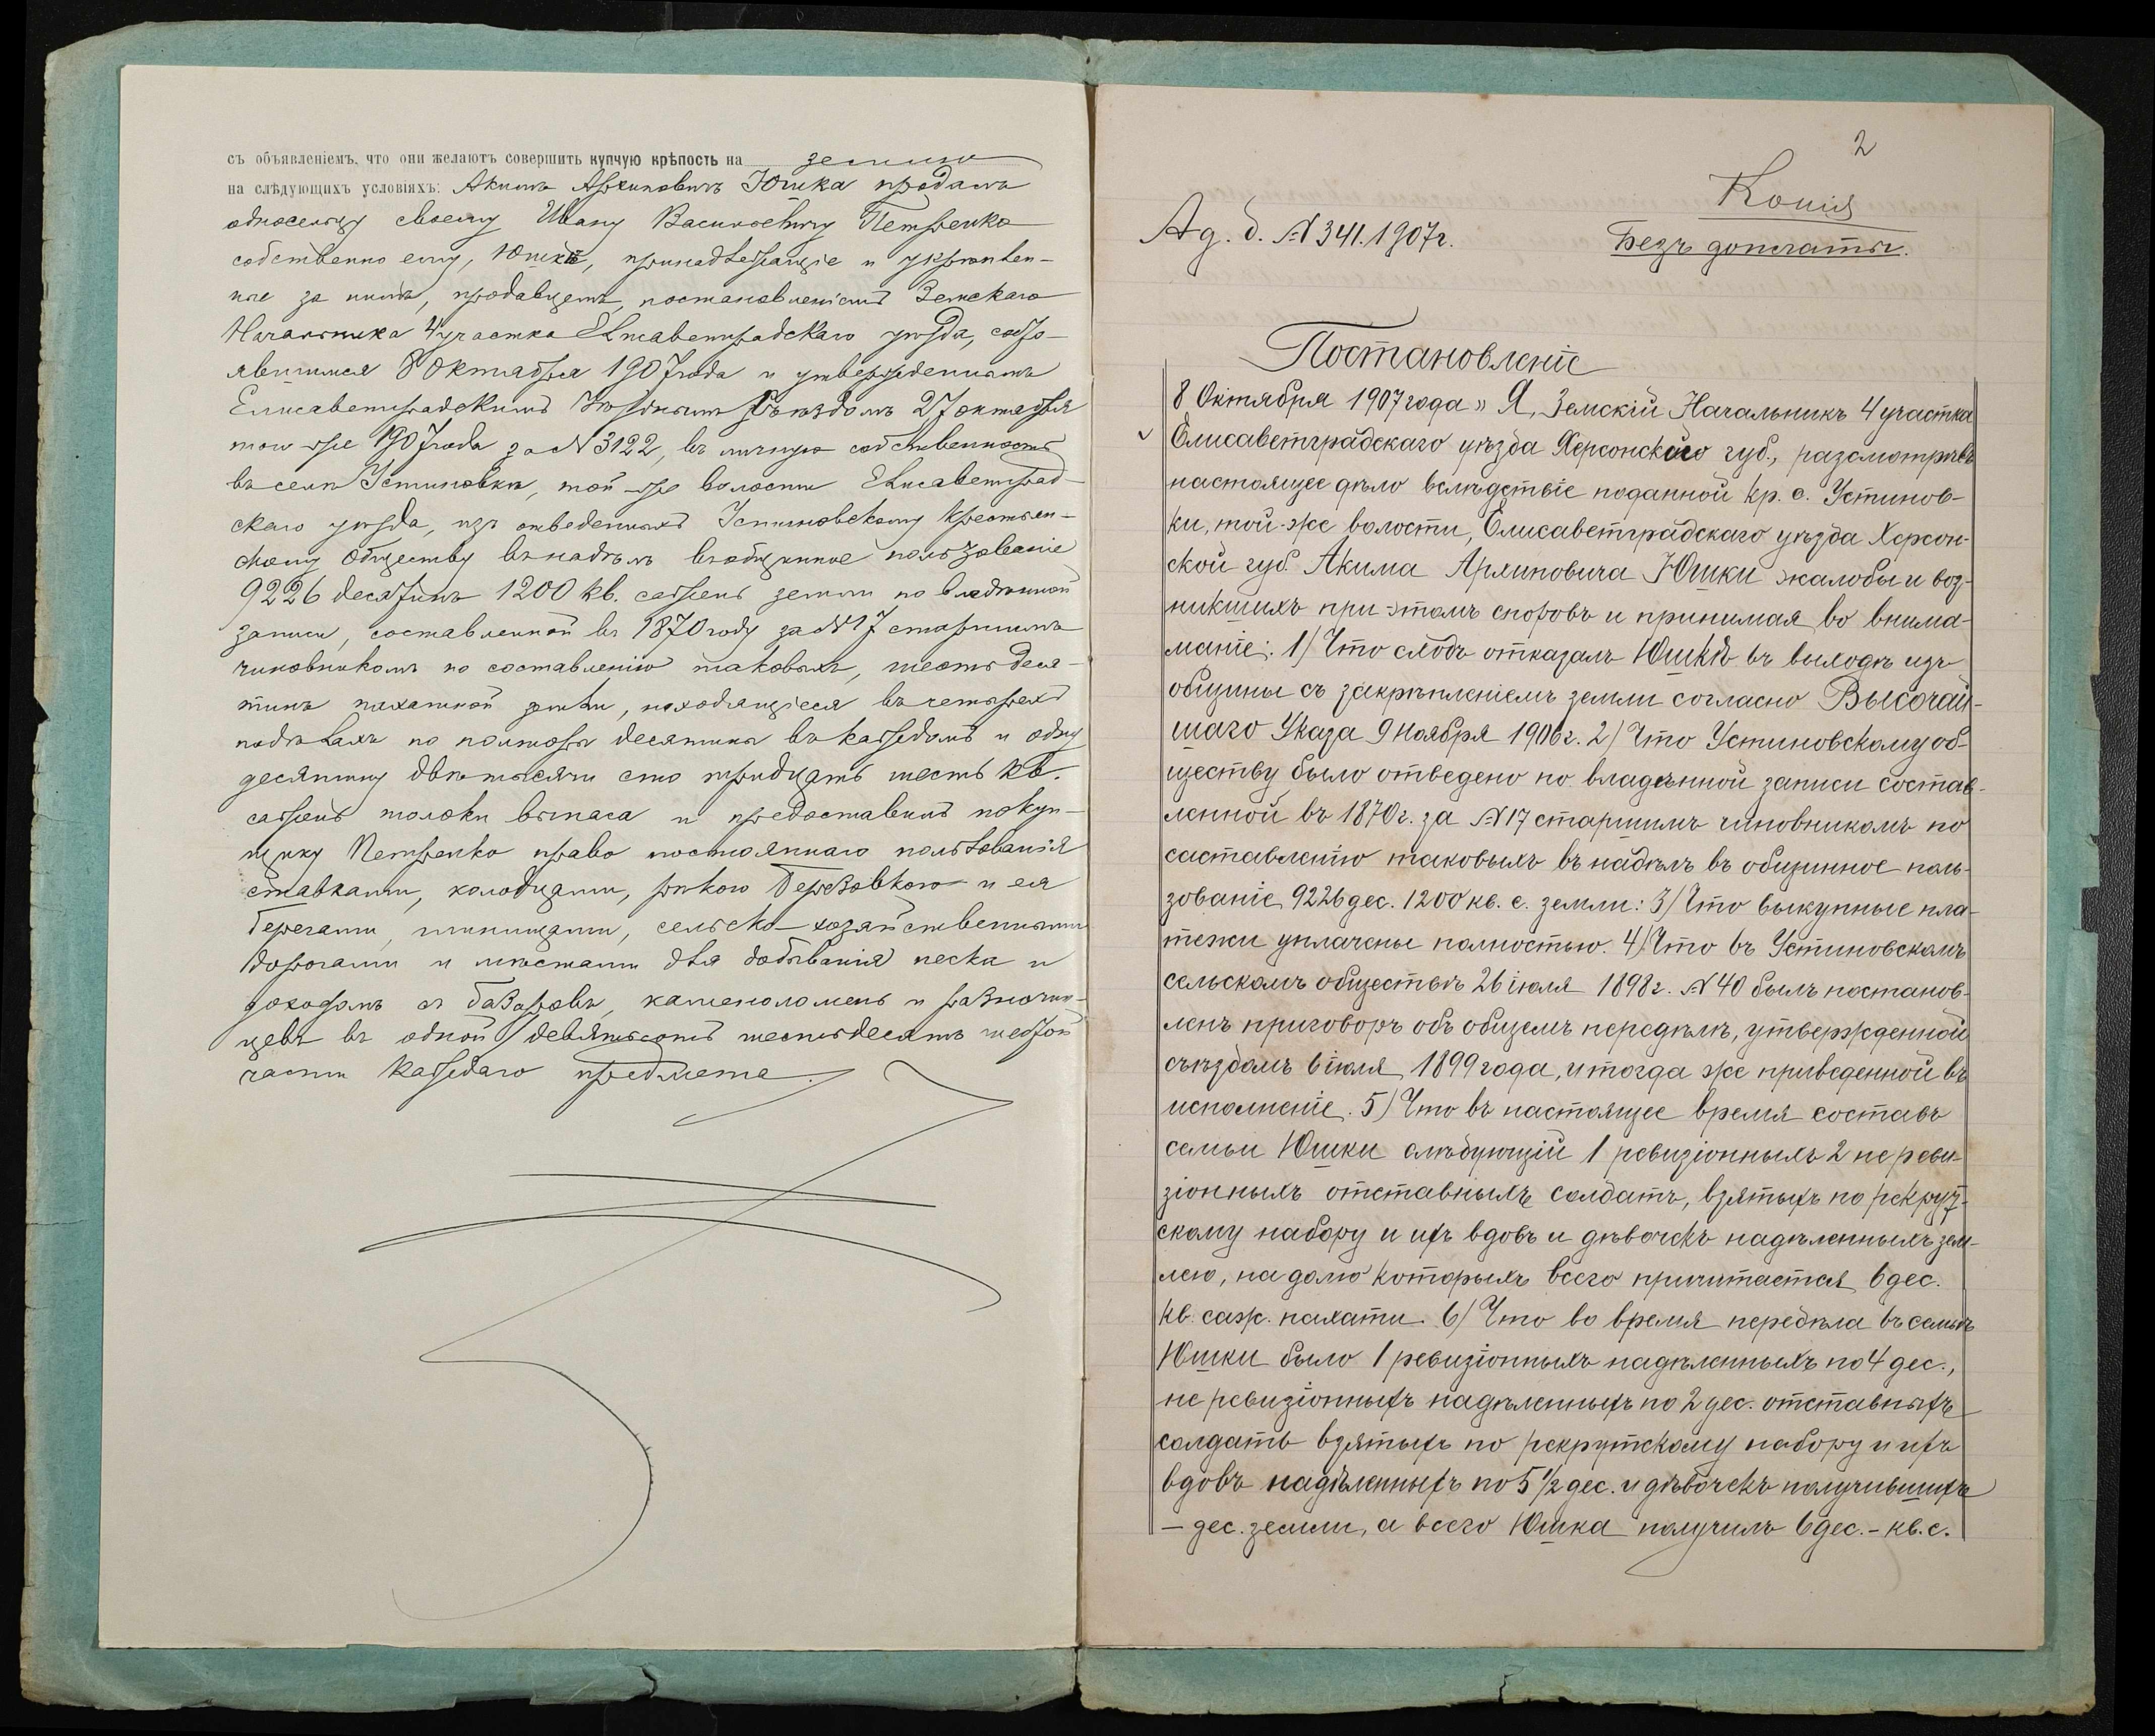 съ объявленіемъ, что они желаютъ совершить купчую крѣпость на землю
на слѣдующихъ условіяхъ: Акимъ Архиповичъ Юшка продалъ
односельцу своему Ивану Васильевичу Петренко
собственно ему, Юшкѣ, принадлежащіе и укрѣплен-
ные за нимъ, продавцемъ, постановленіемъ Земскаго
Начальника 4 участка Елисаветградскаго уѣзда, состо-
явшимся 8 Октября 1907 года и утвержденнымъ
Елисаветградскимъ Уѣзднымъ Съѣздомъ 27 октября
того-же 1907 года за № 3122, въ личную собственность
въ селѣ Устиновкѣ, той-же волости Елисаветград-
скаго уѣзда, изъ отведенныхъ Устиновскому крестьян-
скому Обществу въ надѣлъ въ общинное пользованіе
9226 десятинъ 1200 кв. сажень земли по владѣнной
записи, составленной въ 1870 году за № 17 старшимъ
чиновникомъ по составленію таковыхъ, шесть деся-
тинъ пахатной земли, находящіеся въ четырехъ
подѣлахъ по полторы десятины въ каждомъ и одну
десятину двѣ тысячи сто тридцать шесть кв.
сажень толоки выпаса и предоставилъ покуп-
щику Петренко право постояннаго пользованія
ставками, колодцами, рѣкою Березовкою и ея
берегами, глинищами, сельско-хозяйственными
дорогами и мѣстами для добыванія песка и
доходомъ съ базаровъ, каменоломень и разночин-
цевъ въ одной девятьсотъ шестьдесятъ шестой
части каждаго предмета.
2
Копія
Безъ доплаты.
Ад. д. № 341. 1907 г.
Постановленіе
8 Октября 1907 года » Я, Земскій Начальникъ 4 участка
Елисаветградскаго уѣзда Херсонскаго губ., разсмотрѣвъ
настоящее дѣло вслѣдствіе поданной кр. с. Устинов-
ки, той-же волости, Елисаветградскаго уѣзда Херсон-
ской губ. Акима Архиповича Юшки жалобы и воз-
никшихъ при-этомъ споровъ и принимая во внима-
маніе: 1) Что сходъ отказалъ Юшкѣ въ выходѣ изъ
общины съ закрѣпленіемъ земли согласно Высочай-
шаго Указа 9 Ноября 1906 г. 2) Что Устиновскому об-
ществу было отведено по владѣнной записи состав-
ленной въ 1870 г. за № 17 старшимъ чиновникомъ по
саставленію таковыхъ въ надѣлъ въ общинное поль-
зованіе 9226 дес. 1200 кв. с. земли: 3) Что выкупные пла-
тежи уплачены полностью. 4) Что въ Устиновскомъ
сельскомъ обществѣ 26 іюля 1898 г. № 40 былъ постанов-
ленъ приговоръ объ общемъ передѣлѣ, утвержденной
съѣздомъ 6 іюля 1899 года, и тогда же приведенной въ
исполненіе. 5) Что въ настоящее время составъ
семьи Юшки слѣдующій 1 ревизіонныхъ 2 не реви-
зіонныхъ отставныхъ солдатъ, взятыхъ по рекрут-
скому набору и ихъ вдовъ и дѣвочекъ надѣленныхъ зем-
лею, на долю которыхъ всего причитается 6 дес.
кв. саж. пахати. 6) Что во время передѣла въ семьѣ
Юшки было 1 ревизіонныхъ надѣленныхъ по 4 дес.,
не ревизіонныхъ надѣленныхъ по 2 дес. отставныхъ
солдатъ взятыхъ по рекрутскому набору и ихъ
вдовъ надѣленныхъ по 5 1/2 дес. и дѣвочекъ получившихъ
— дес. земли, а всего Юшка получилъ 6 дес. - кв. с.